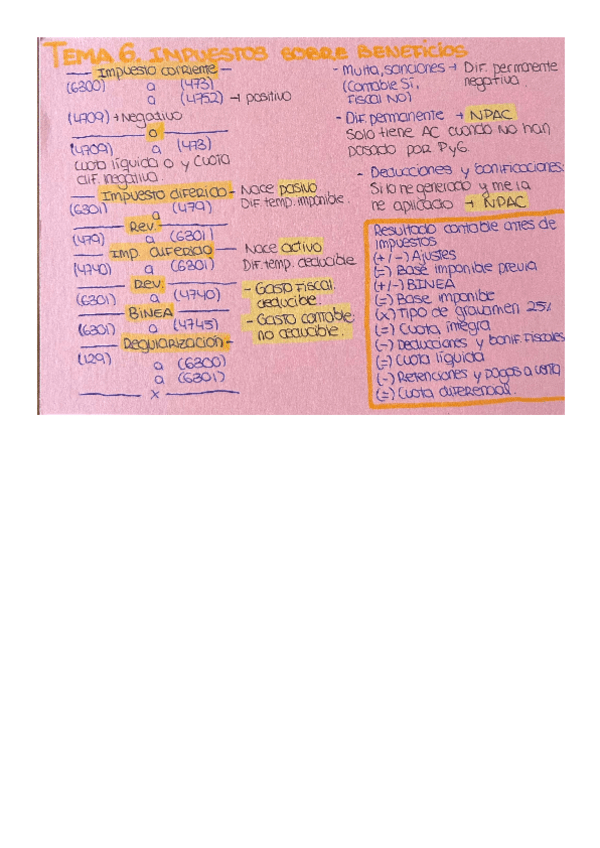 TEMA 6. IMPUESTOS SOBRE BENEFICIOS
Impuesto corriente
(6300) a (473)
a (4752) → positivo
(4709) → Negativo
o
(4709) a (473)
cuota líquida 0 y cuota
dif. negativa.
Impuesto diferido - Nace pasivo
Dif. temp. imponible.
(6301) a (479)
Rev.
(479) a (6301)
Imp. diferido - Nace activo
Dif. temp. deducible
(4740) a (6301)
Rev.
(6301) a (4740)
- Gasto fiscal:
deducible.
- Gasto contable:
no deducible.
BINEA
(6301) a (4745)
Regularización
(129) a (6300)
a (6301)
x
- Multa, sanciones → Dif. permanente
negativa.
(Contable Sí,
Fiscal NO)
- Dif. permanente → NPAC
Solo tiene AC cuando NO han
pasado por PyG.
- Deducciones y bonificaciones:
Si lo he generado y me la
he aplicado → NPAC
Resultado contable antes de
impuestos
(+/-) Ajustes
(=) Base imponible previa
(+/-) BINEA
(=) Base imponible
(x) Tipo de gravamen 25%
(=) Cuota íntegra
(-) Deducciones y bonif. Fiscales
(=) Cuota líquida
(-) Retenciones y pagos a cuenta
(=) Cuota diferencial.